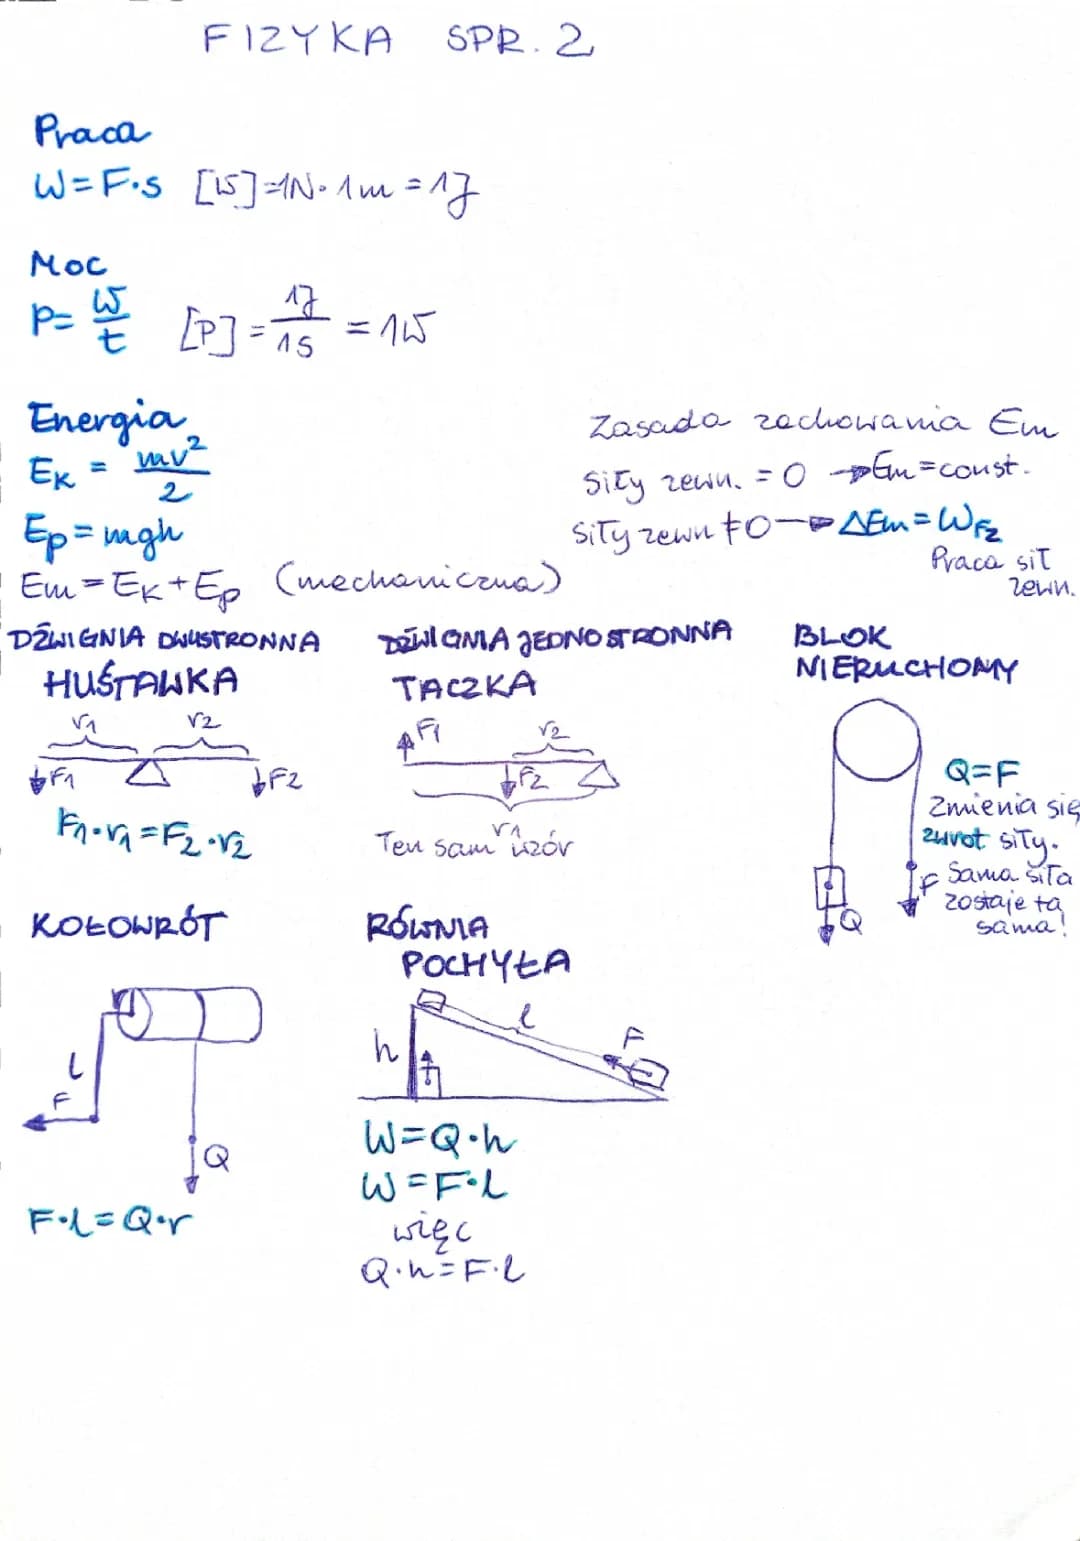 FIZYKA SPR. 2
Praca
W=F·s [W]=1N·1m=1J
Moc
P=W/t [P]=1J/1s=1W
Energia
Ek = mv²/2
Ep=mgh
Em=Ek+Ep (mechaniczna)
Zasada zachowania Em
Siły zewn. = 0 → Em=const.
Siły zewn ≠0 → ΔEm=WFz
Praca sił
zewn.
DŹWIGNIA DWUSTRONNA
HUŚTAWKA
r1 r2
F1 F2
F1·r1=F2·r2
DŹWIGNIA JEDNOSTRONNA
TACZKA
F1 r2
F2
r1
Ten sam wzór
BLOK
NIERUCHOMY
Q=F
Zmienia się
zwrot siły.
F Sama siła
zostaje ta
sama!
Q
KOŁOWRÓT
l
F
Q
F·l=Q·r
RÓWNIA
POCHYŁA
l
h F
W=Q·h
W=F·l
więc
Q·h=F·l